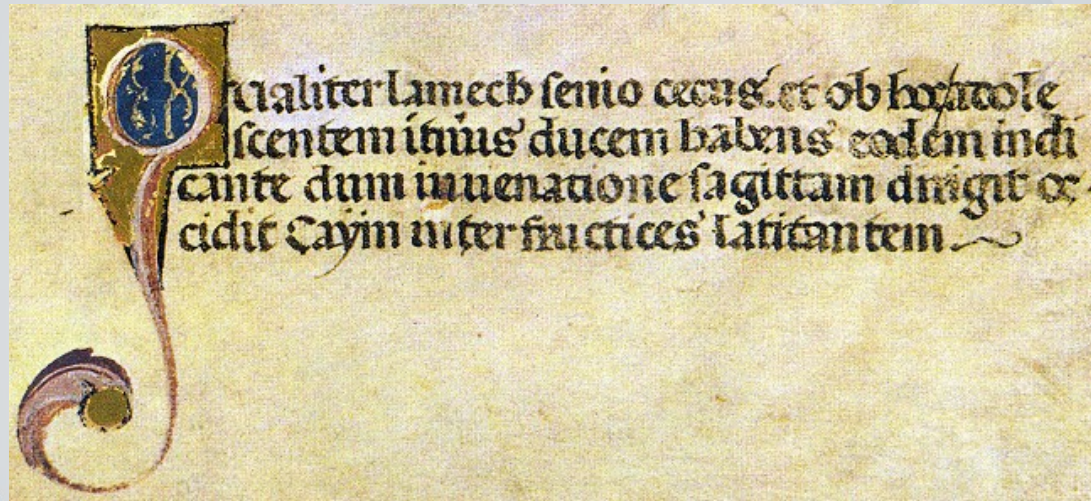 lamech senio cecus. et ob hoc adole
scentem ducem habens eodem indi
cante dum in uenatione sagittam dirigit oc
cidit Cayin inter fructices latitantem